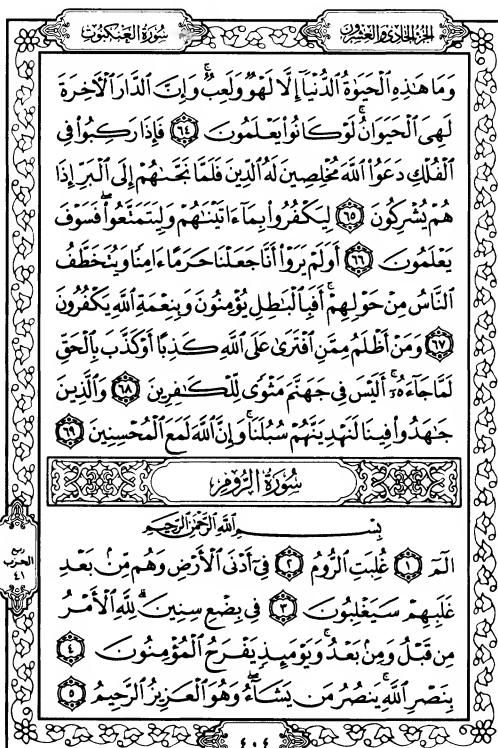 الجزء الحادي والعشرون
سُورَةُ العَنكبُوت
وَمَا هَٰذِهِ ٱلْحَيَوٰةُ ٱلدُّنْيَآ إِلَّا لَهْوٌ وَلَعِبٌ ۚ وَإِنَّ ٱلدَّارَ ٱلْـَٔاخِرَةَ
لَهِىَ ٱلْحَيَوَانُ ۚ لَوْ كَانُوا۟ يَعْلَمُونَ ٦٤ فَإِذَا رَكِبُوا۟ فِى
ٱلْفُلْكِ دَعَوُا۟ ٱللَّهَ مُخْلِصِينَ لَهُ ٱلدِّينَ فَلَمَّا نَجَّىٰهُمْ إِلَى ٱلْبَرِّ إِذَا
هُمْ يُشْرِكُونَ ٦٥ لِيَكْفُرُوا۟ بِمَآ ءَاتَيْنَٰهُمْ وَلِيَتَمَتَّعُوا۟ ۖ فَسَوْفَ
يَعْلَمُونَ ٦٦ أَوَلَمْ يَرَوْا۟ أَنَّا جَعَلْنَا حَرَمًا ءَامِنًا وَيُتَخَطَّفُ
ٱلنَّاسُ مِنْ حَوْلِهِمْ ۚ أَفَبِٱلْبَٰطِلِ يُؤْمِنُونَ وَبِنِعْمَةِ ٱللَّهِ يَكْفُرُونَ
٦٧ وَمَنْ أَظْلَمُ مِمَّنِ ٱفْتَرَىٰ عَلَى ٱللَّهِ كَذِبًا أَوْ كَذَّبَ بِٱلْحَقِّ
لَمَّا جَآءَهُۥٓ ۚ أَلَيْسَ فِى جَهَنَّمَ مَثْوًى لِّلْكَٰفِرِينَ ٦٨ وَٱلَّذِينَ
جَٰهَدُوا۟ فِينَا لَنَهْدِيَنَّهُمْ سُبُلَنَا ۚ وَإِنَّ ٱللَّهَ لَمَعَ ٱلْمُحْسِنِينَ ٦٩
سُورَةُ الرُّومِ
بِسْمِ ٱللَّهِ ٱلرَّحْمَٰنِ ٱلرَّحِيمِ
الٓمٓ ١ غُلِبَتِ ٱلرُّومُ ٢ فِىٓ أَدْنَى ٱلْأَرْضِ وَهُم مِّنۢ بَعْدِ
غَلَبِهِمْ سَيَغْلِبُونَ ٣ فِى بِضْعِ سِنِينَ ۗ لِلَّهِ ٱلْأَمْرُ
مِن قَبْلُ وَمِنۢ بَعْدُ ۚ وَيَوْمَئِذٍ يَفْرَحُ ٱلْمُؤْمِنُونَ ٤
بِنَصْرِ ٱللَّهِ ۚ يَنصُرُ مَن يَشَآءُ ۖ وَهُوَ ٱلْعَزِيزُ ٱلرَّحِيمُ ٥
ربع
الحزب
٤١
٤٠٤